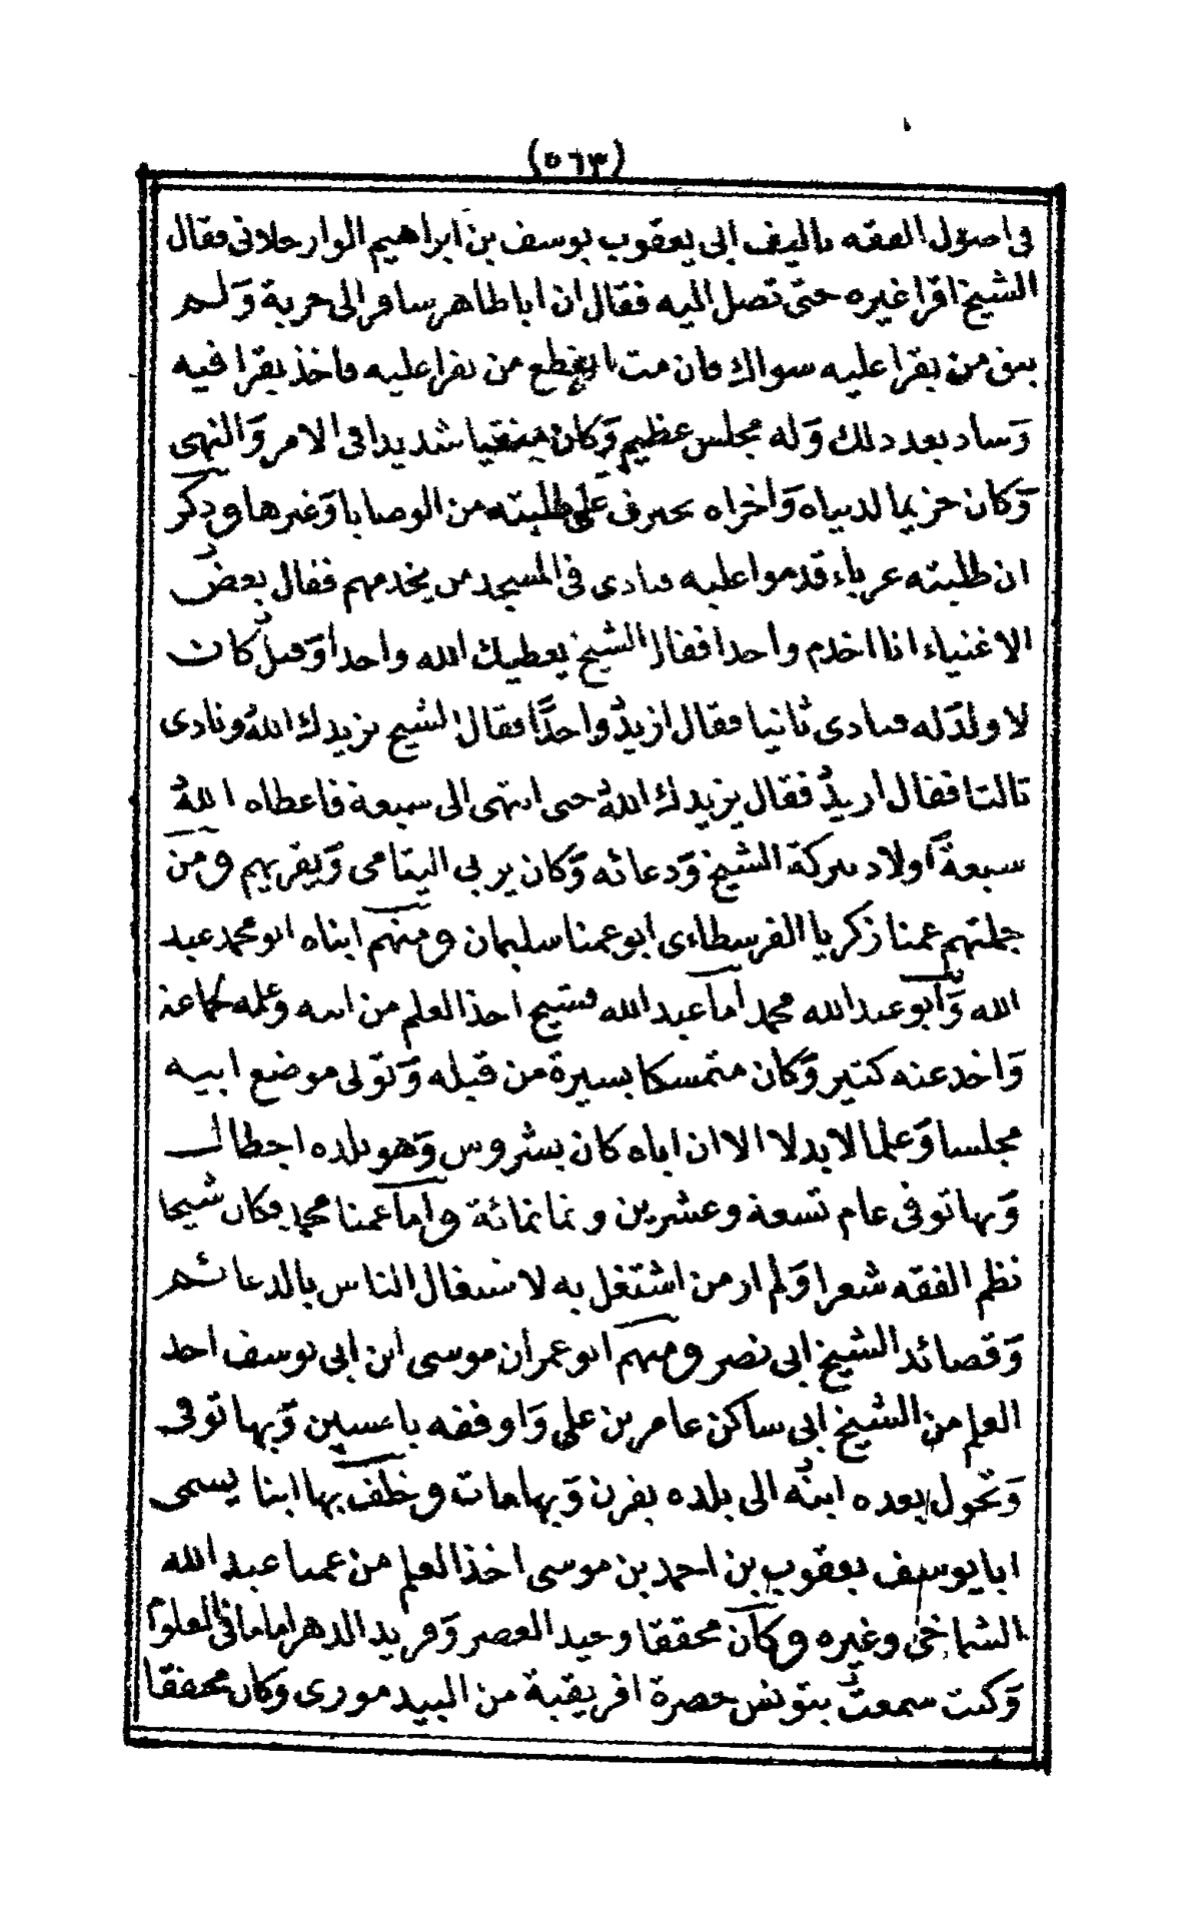 (٥٦٣)
في اصول الفقه تاليف ابي يعقوب يوسف بن ابراهيم الوارجلاني فقال
الشيخ اقرا غيره حتى تصل اليه فقال ان ابا طاهر سافر الى جربة ولم
يبق من يقرا عليه سواك فان مت انقطع من يقرا عليه فاخذ يقرا فيه
وساد بعد ذلك وله مجلس عظيم وكان شديدا في الامر والنهى
وكان حزيما لدنياه واخراه على طلبته من الوصايا وغيرها وذكر
ان طلبته غرباء قدموا عليه فنادى في المسجد من يخدمهم فقال بعض
الاغنياء انا اخدم واحدا فقال الشيخ يعطيك الله واحدا وقيل كان
لا ولد له فنادى ثانيا فقال ازيد واحدا فقال الشيخ يزيدك الله ونادى
ثالثا فقال اريد فقال يزيدك الله حتى انتهى الى سبعة فاعطاه الله
سبعة اولاد ببركة الشيخ ودعائه وكان يربي اليتامى ويقريهم ومن
جملتهم عمنا زكريا الفرسطاءى ابو عمنا سليمان ومنهم ابناه ابو محمد عبد
الله وابو عبد الله محمد اما عبد الله فشيخ اخذ العلم من ابيه وعلمه جماعة
واخذ عنه كثير وكان متمسكا بسيرة من قبله وتولى موضع ابيه
مجلسا وعلما لا بدلا الا ان اباه كان بشروس وهو ببلده اجطال
وبها توفي عام تسعة وعشرين وثمانمائة واما عمنا محمد فكان شيخا
نظم الفقه شعرا ولم ار من اشتغل به لاشتغال الناس بالدعائم
وقصائد الشيخ ابي نصر ومنهم ابو عمران موسى ابن ابي يوسف اخذ
العلم من الشيخ ابي ساكن عامر بن علي واوقفه وبها توفى
وتحول بعده ابنه الى بلده يفرن وبها مات وخلف بها ابنا يسمى
ابا يوسف يعقوب بن احمد بن موسى اخذ العلم من عمنا عبد الله
الشماخي وغيره وكان محققا وحيد العصر وفريد الدهر اماما في العلوم
وكنت سمعت بتونس حضرة افريقية من البيدمورى وكان محققا